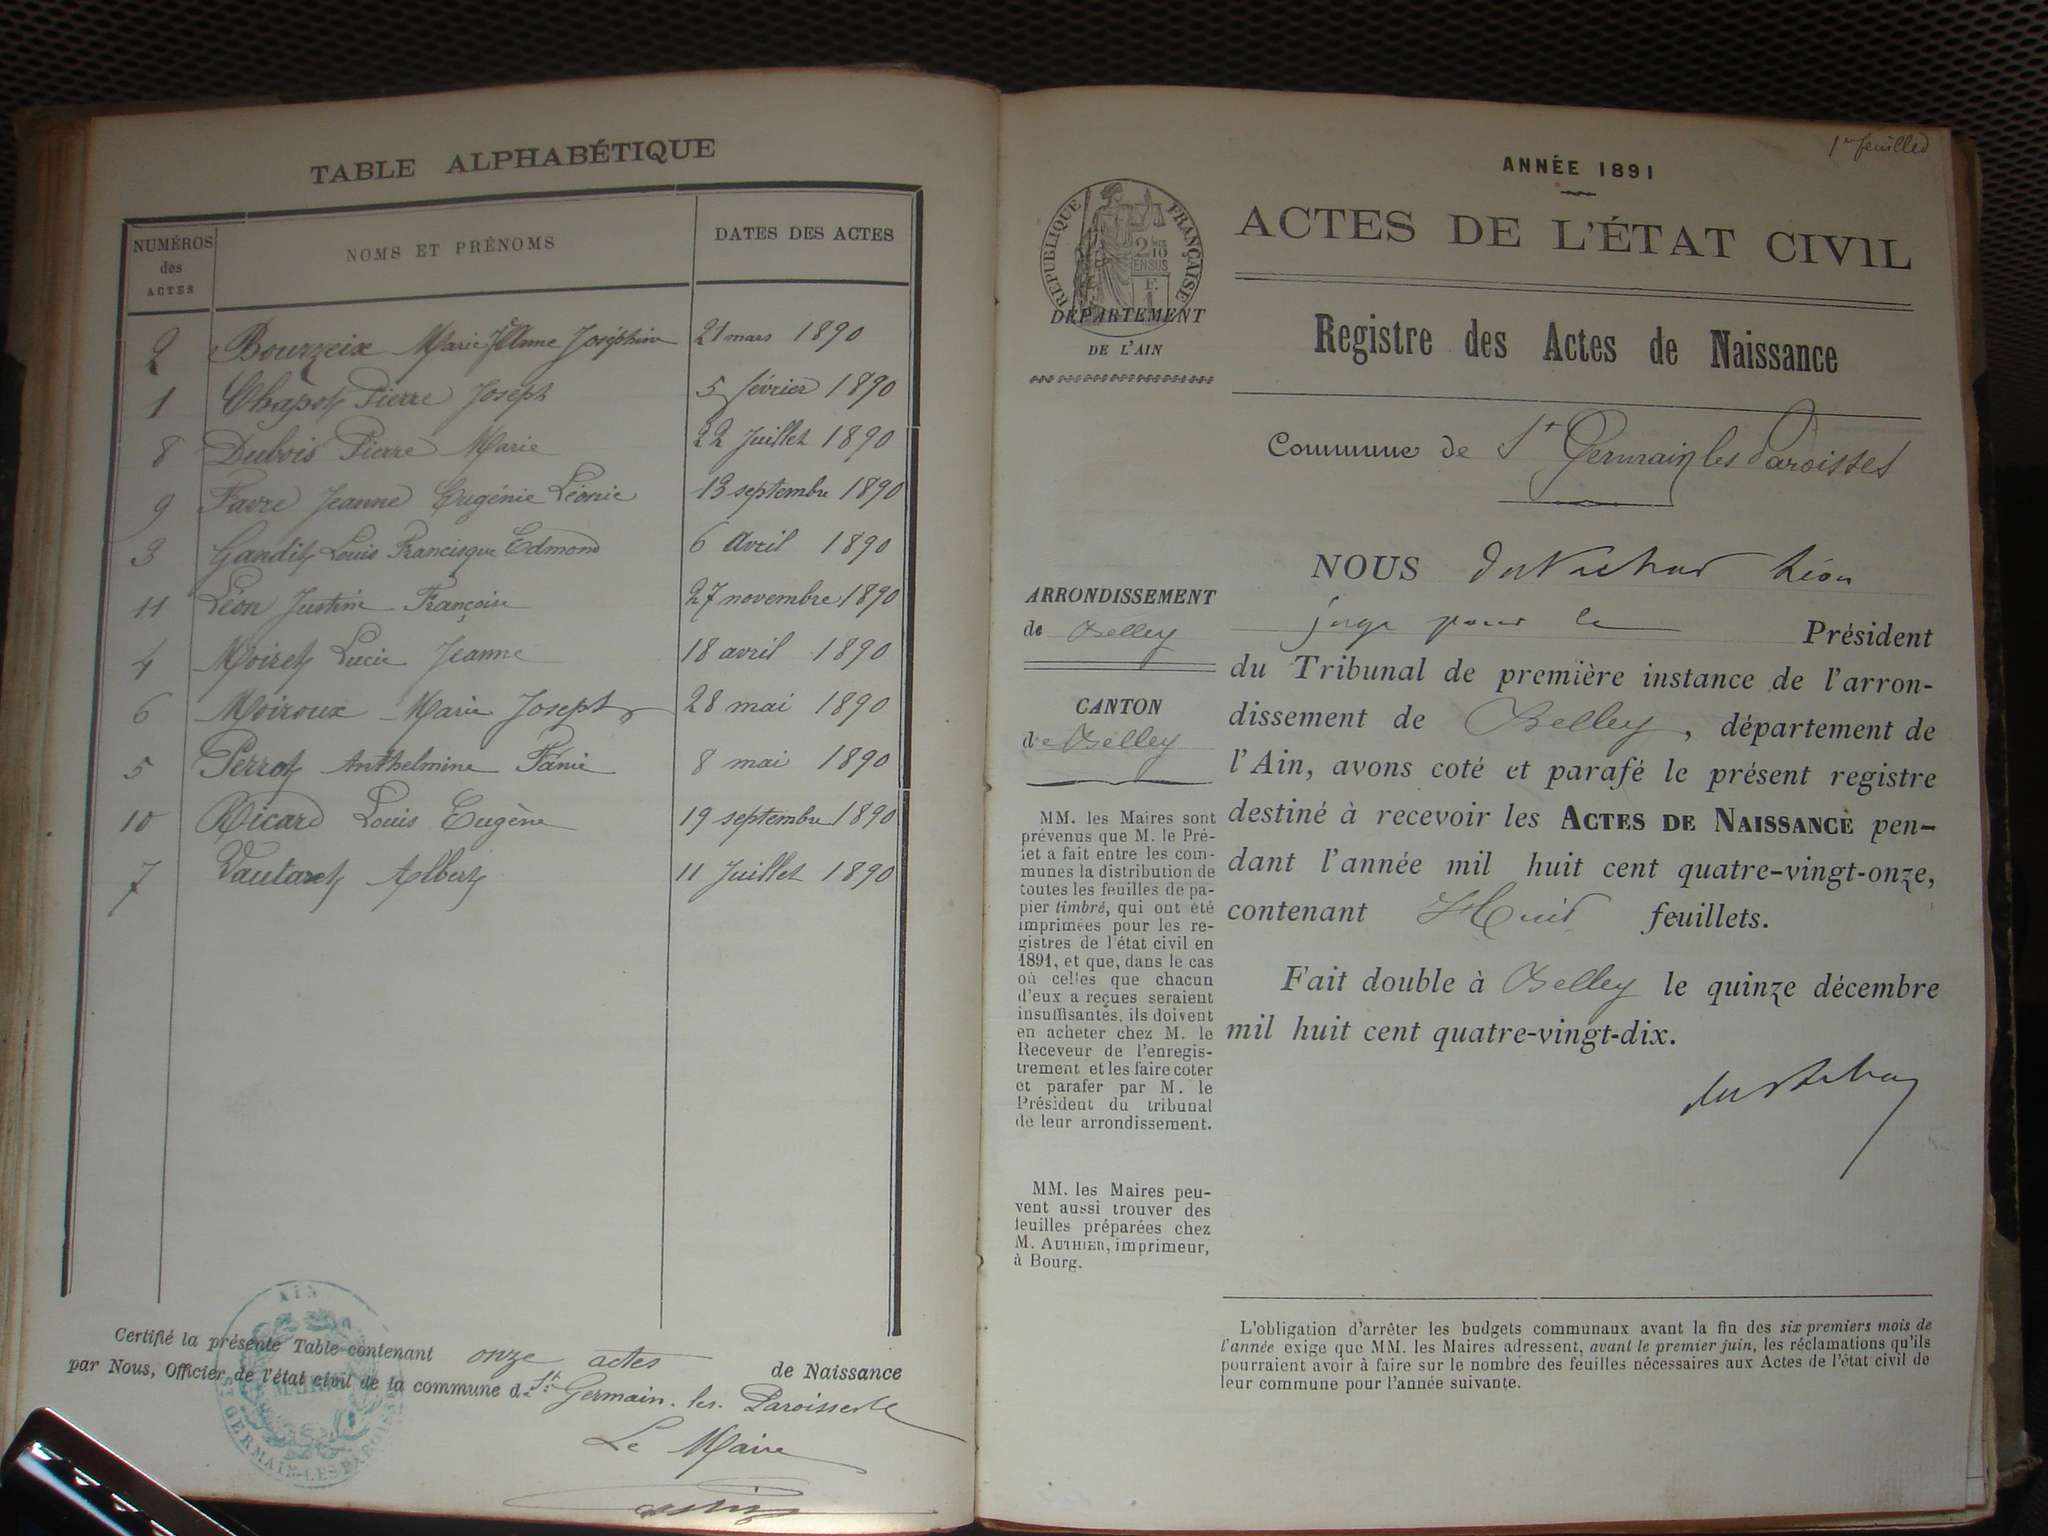 TABLE ALPHABÉTIQUE
NUMÉROS des ACTES NOMS ET PRÉNOMS DATES DES ACTES
2 Bourzeix Marie Anne Joséphine 21 mars 1890
1 Chapot Pierre Joseph 5 février 1890
8 Dubois Pierre Marie 22 Juillet 1890
9 Favre Jeanne Eugénie Léonie 13 septembre 1890
3 Gandit Louis Francisque Edmond 6 Avril 1890
11 Léon Justine Françoise 27 novembre 1890
4 Moiret Lucie Jeanne 18 avril 1890
6 Moiroux Marie Joseph 28 mai 1890
5 Perrot Anthelmine Fanie 8 mai 1890
10 Ricard Louis Eugène 19 septembre 1890
7 Vautaret Albert 11 Juillet 1890
Certifié la présente Table contenant onze actes de Naissance
par Nous, Officier de l'état civil de la commune de St Germain-les-Paroisses
Le Maire
AIN
MAIRIE
ST GERMAIN-LES-PAROISSES
1er feuillet
ANNÉE 1891
ACTES DE L'ÉTAT CIVIL
RÉPUBLIQUE FRANÇAISE
2 10 EN SUS
F.
DÉPARTEMENT
DE L'AIN
Registre des Actes de Naissance
Commune de St Germain les Paroisses
ARRONDISSEMENT
de Belley
CANTON
de Belley
MM. les Maires sont
prévenus que M. le Pré-
fet a fait entre les com-
munes la distribution de
toutes les feuilles de pa-
pier timbré, qui ont été
imprimées pour les re-
gistres de l'état civil en
1891, et que, dans le cas
où celles que chacun
d'eux a reçues seraient
insuffisantes, ils doivent
en acheter chez M. le
Receveur de l'enregis-
trement et les faire coter
et parafer par M. le
Président du tribunal
de leur arrondissement.
MM. les Maires peu-
vent aussi trouver des
feuilles préparées chez
M. AUTHIER, imprimeur,
à Bourg.
NOUS Léon
juge pour le Président
du Tribunal de première instance de l'arron-
dissement de Belley, département de
l'Ain, avons coté et parafé le présent registre
destiné à recevoir les ACTES DE NAISSANCE pen-
dant l'année mil huit cent quatre-vingt-onze,
contenant Huit feuillets.
Fait double à Belley le quinze décembre
mil huit cent quatre-vingt-dix.
L'obligation d'arrêter les budgets communaux avant la fin des six premiers mois de
l'année exige que MM. les Maires adressent, avant le premier juin, les réclamations qu'ils
pourraient avoir à faire sur le nombre des feuilles nécessaires aux Actes de l'état civil de
leur commune pour l'année suivante.